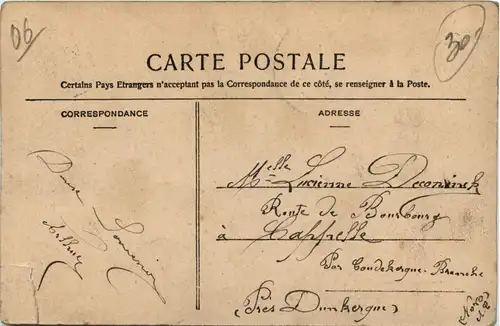 06
30
CARTE POSTALE
Certains Pays Etrangers n'acceptent pas la Correspondance de ce côté, se renseigner à la Poste.
CORRESPONDANCE
ADRESSE
Doux Souvenir
Arthur
Melle Lucienne Deconinck
Route de Bourbourg
à Cappelle
Par Coudekerque-Branche
(Près Dunkerque)
(Nord)